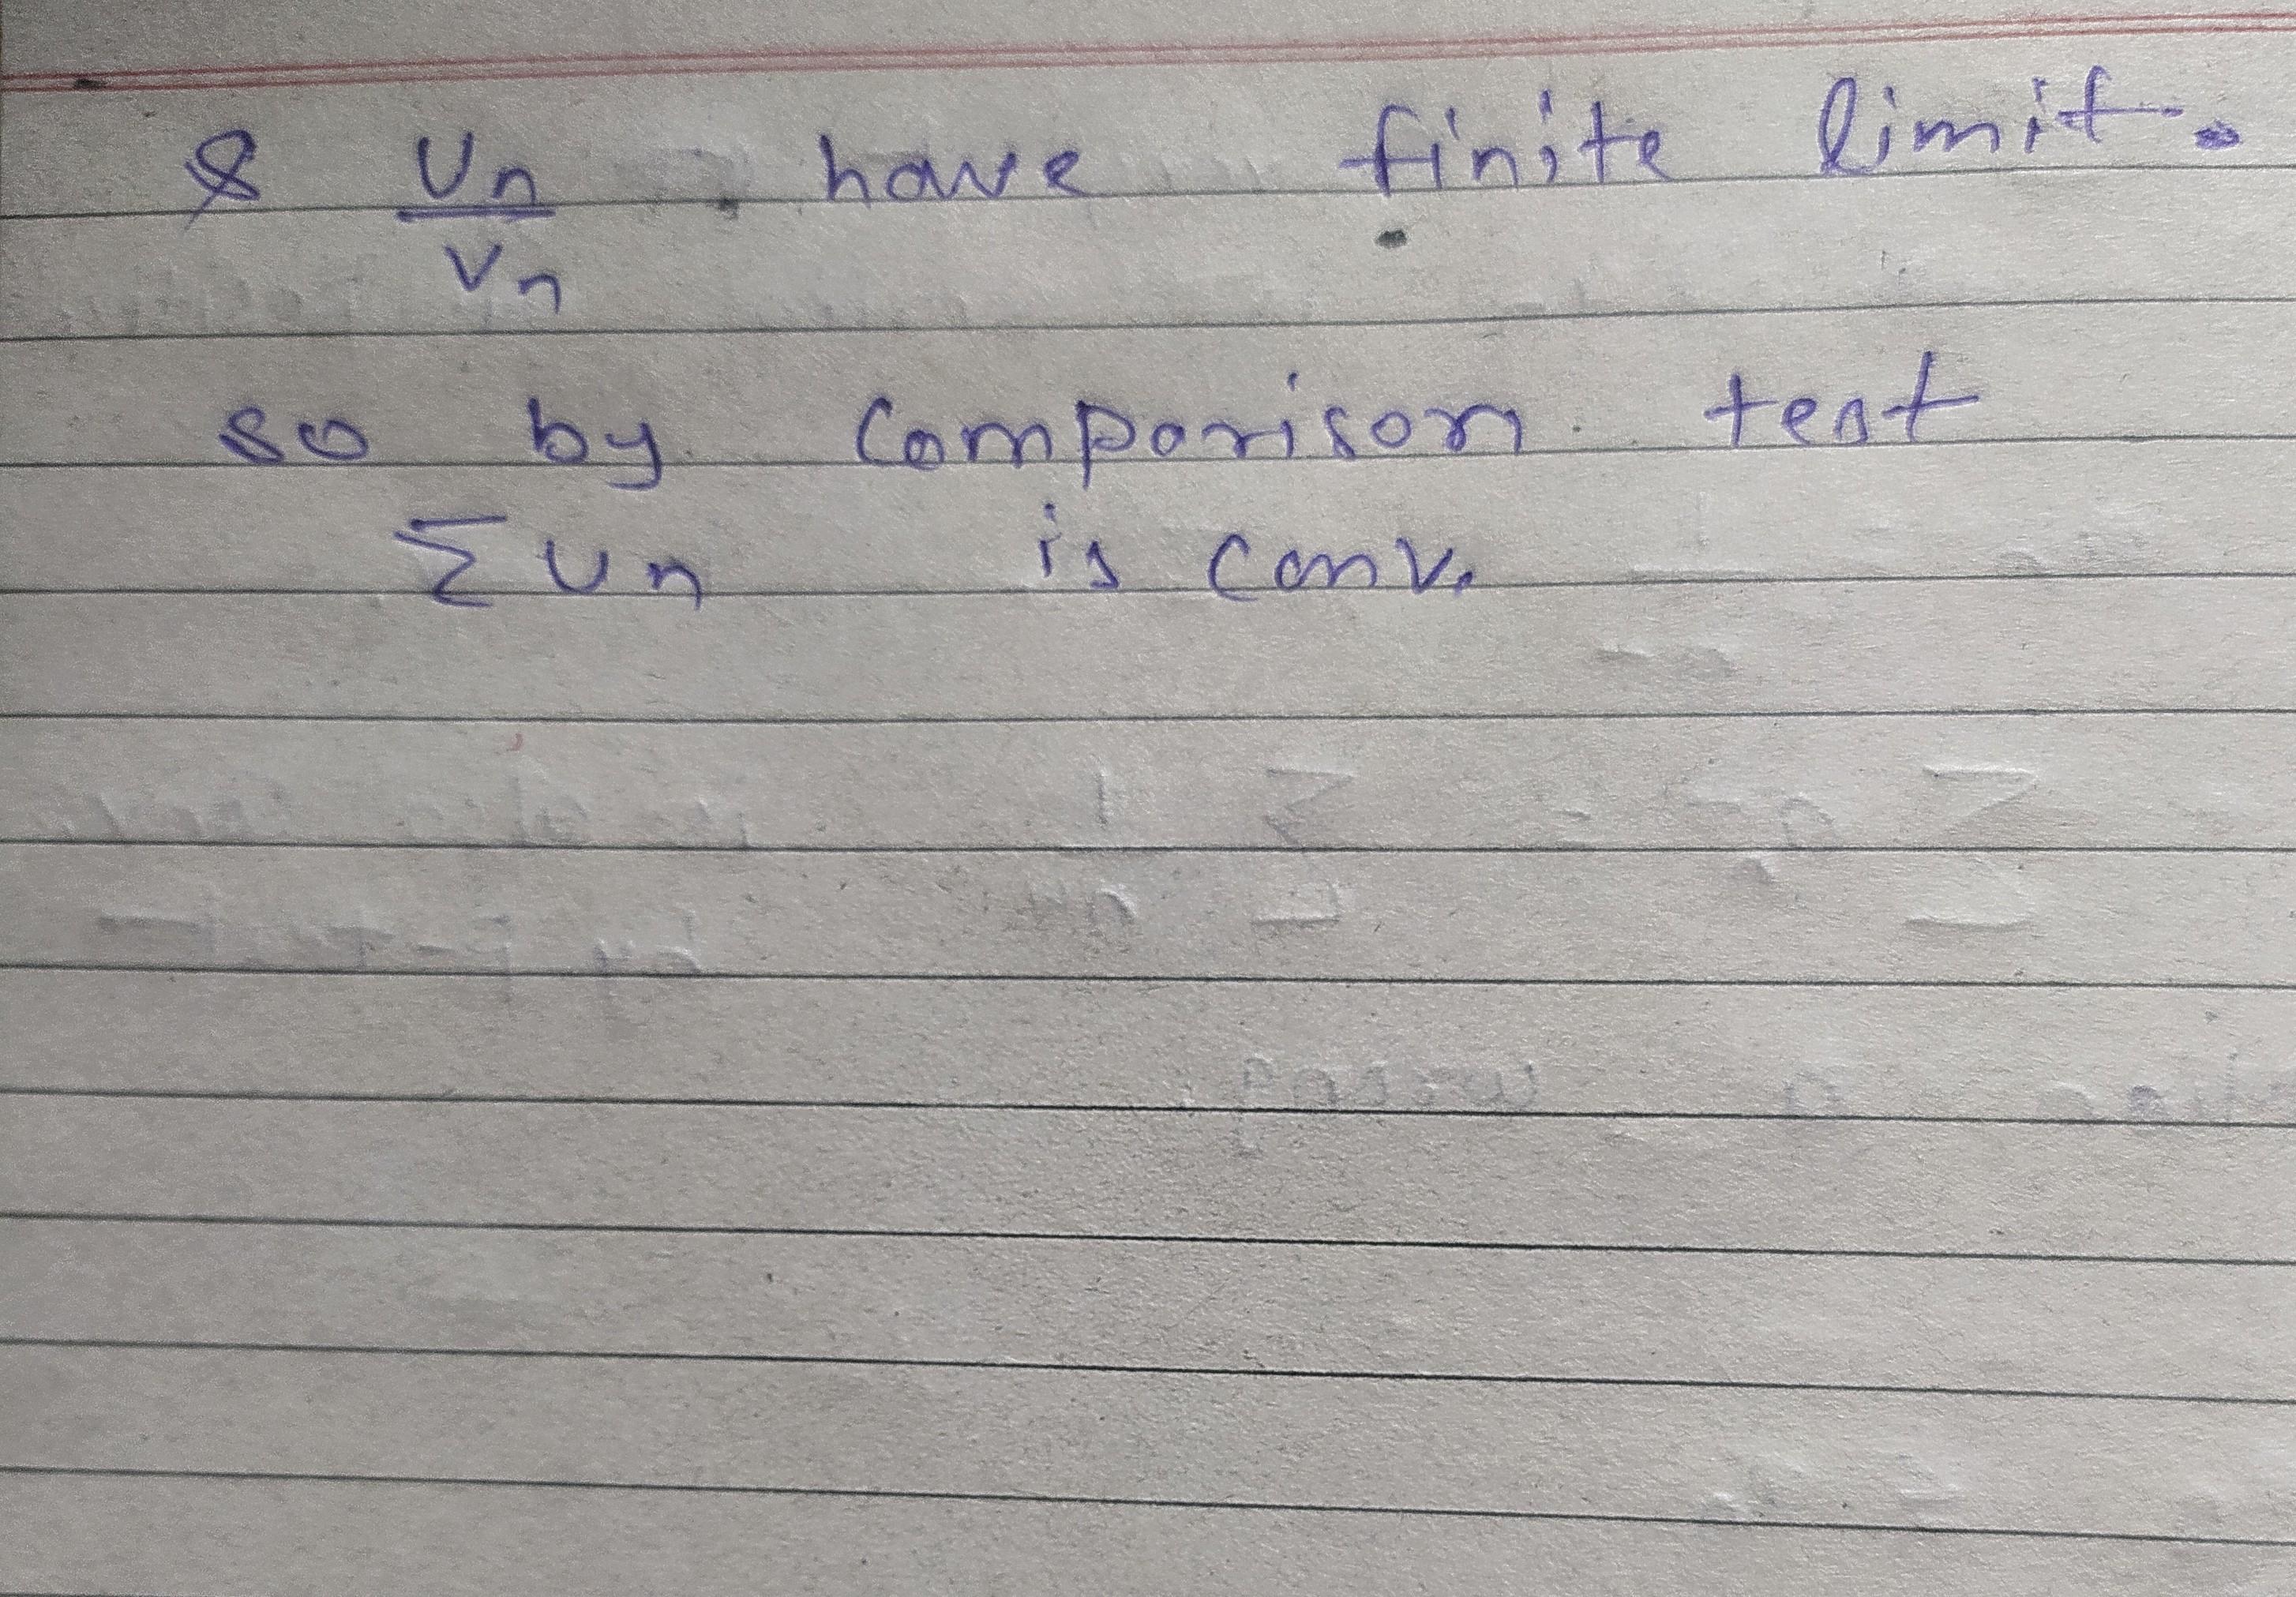 & Un/Vn have finite limit.
so by Comparison test
ΣUn is conv.